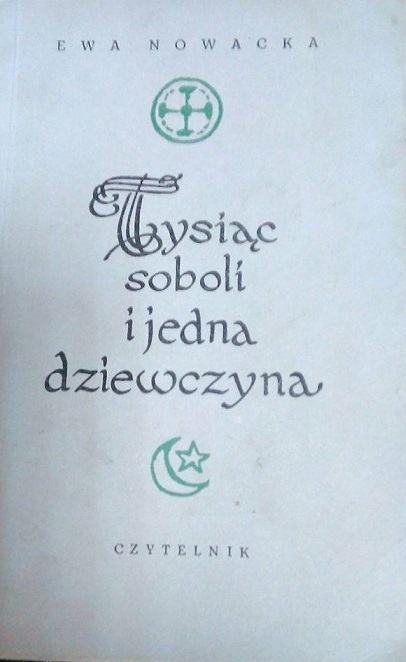 EWA NOWACKA
Tysiąc
soboli
i jedna
dziewczyna
CZYTELNIK